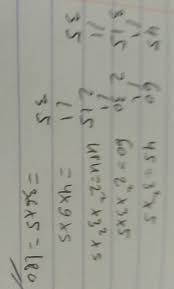 45 60 45 = 3² × 5
3 15 2 30 60 = 2² × 3 × 5
3 5 2 15 LCM = 2² × 3² × 5
3 5 = 4 × 9 × 5
= 36 × 5 = 180